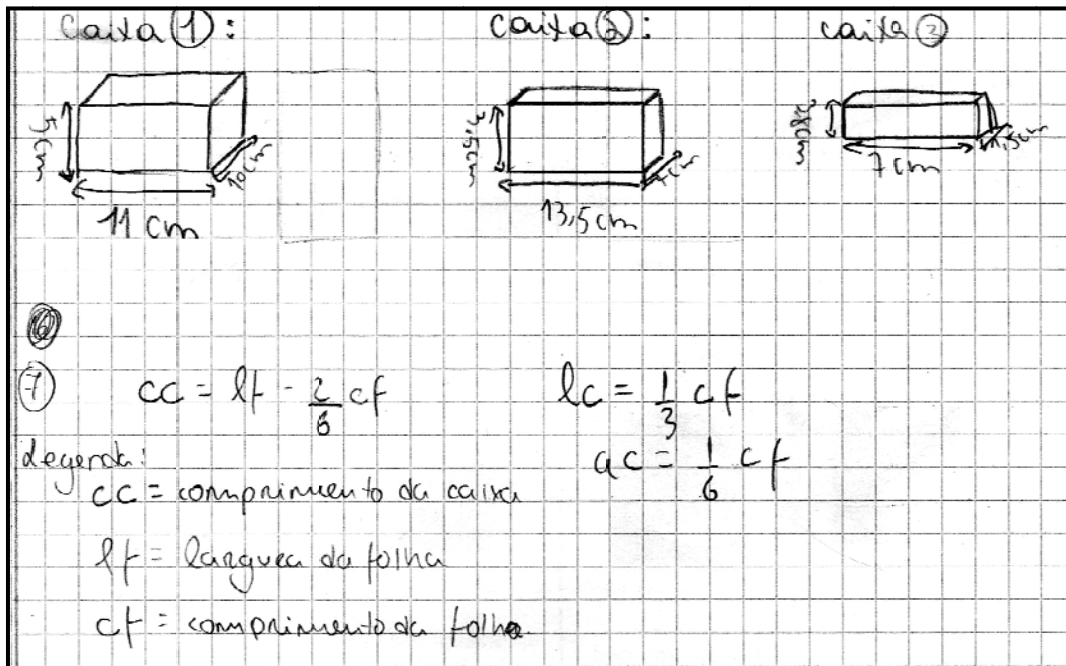 caixa ①: caixa ②: caixa ③
5cm 10cm 3,5cm 7cm 7cm
11 cm 13,5cm
⑦ cc = lf - 2/6 cf lc = 1/3 cf
Legenda: ac = 1/6 cf
cc = comprimento da caixa
lf = largura da folha
cf = comprimento da folha